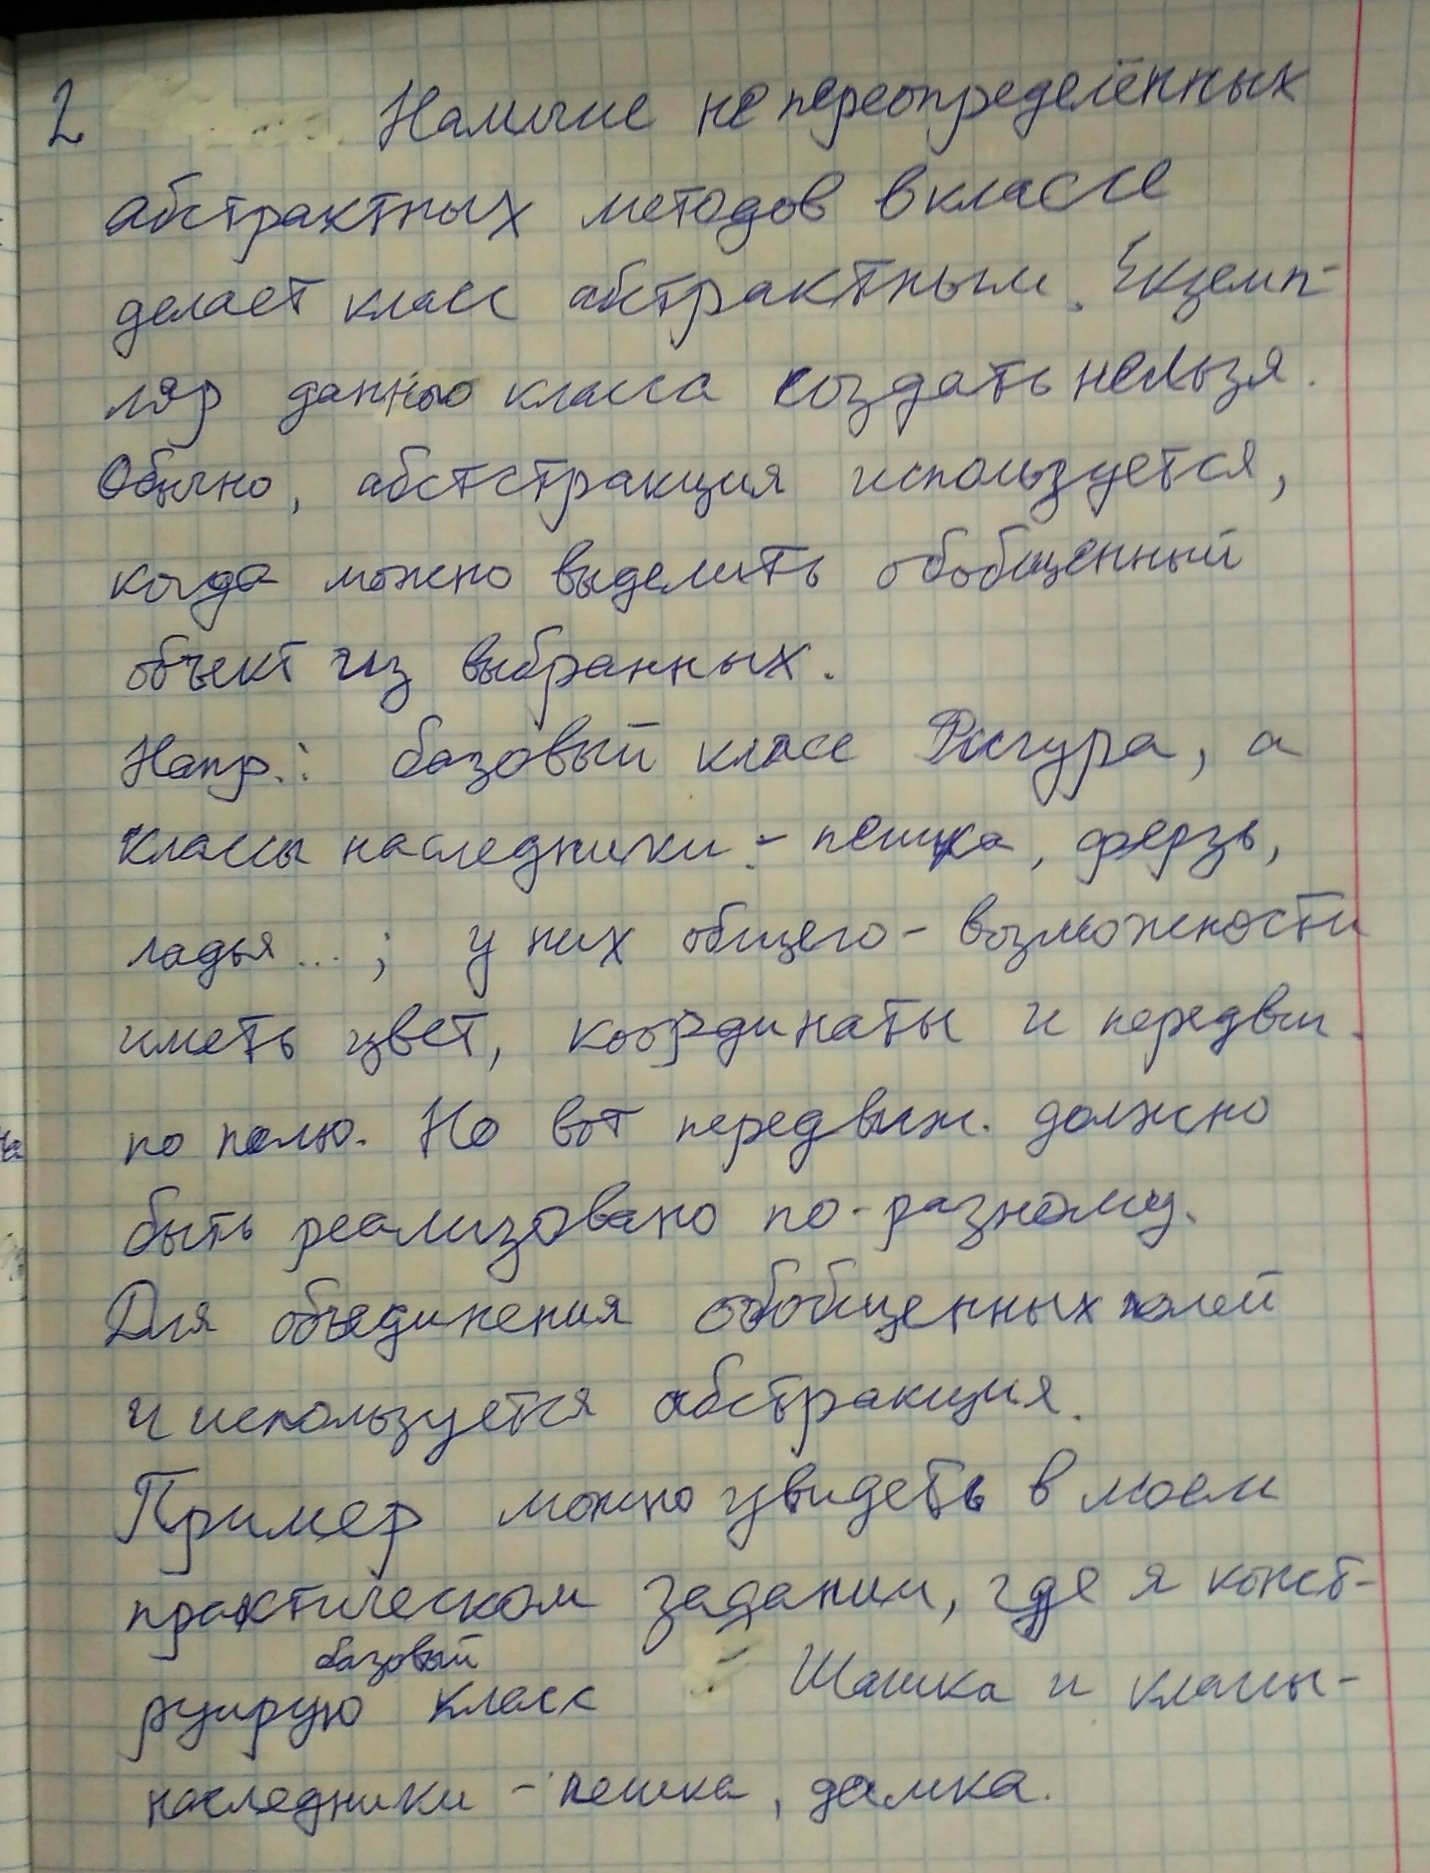 2 Наличие не переопределённых
абстрактных методов в классе
делает класс абстрактным. Екземп-
ляр данно класса создать нельзя.
Обычно, абстстракция используется,
когда можно выделить обобщенный
объект из выбранных.
Напр.: базовый класс Фигура, а
классы наследники - пешка, ферзь,
ладья...; у них общего - возможности
иметь цвет, координаты и передвиг.
по полю. Но вот передвиж. должно
быть реализовано по-разному.
Для объединения обобщенных полей
и используется абстракция.
Пример можно увидеть в моем
практическом задании, где я конст-
базовый
руирую класс Шашка и классы-
наследники - пешка, дамка.